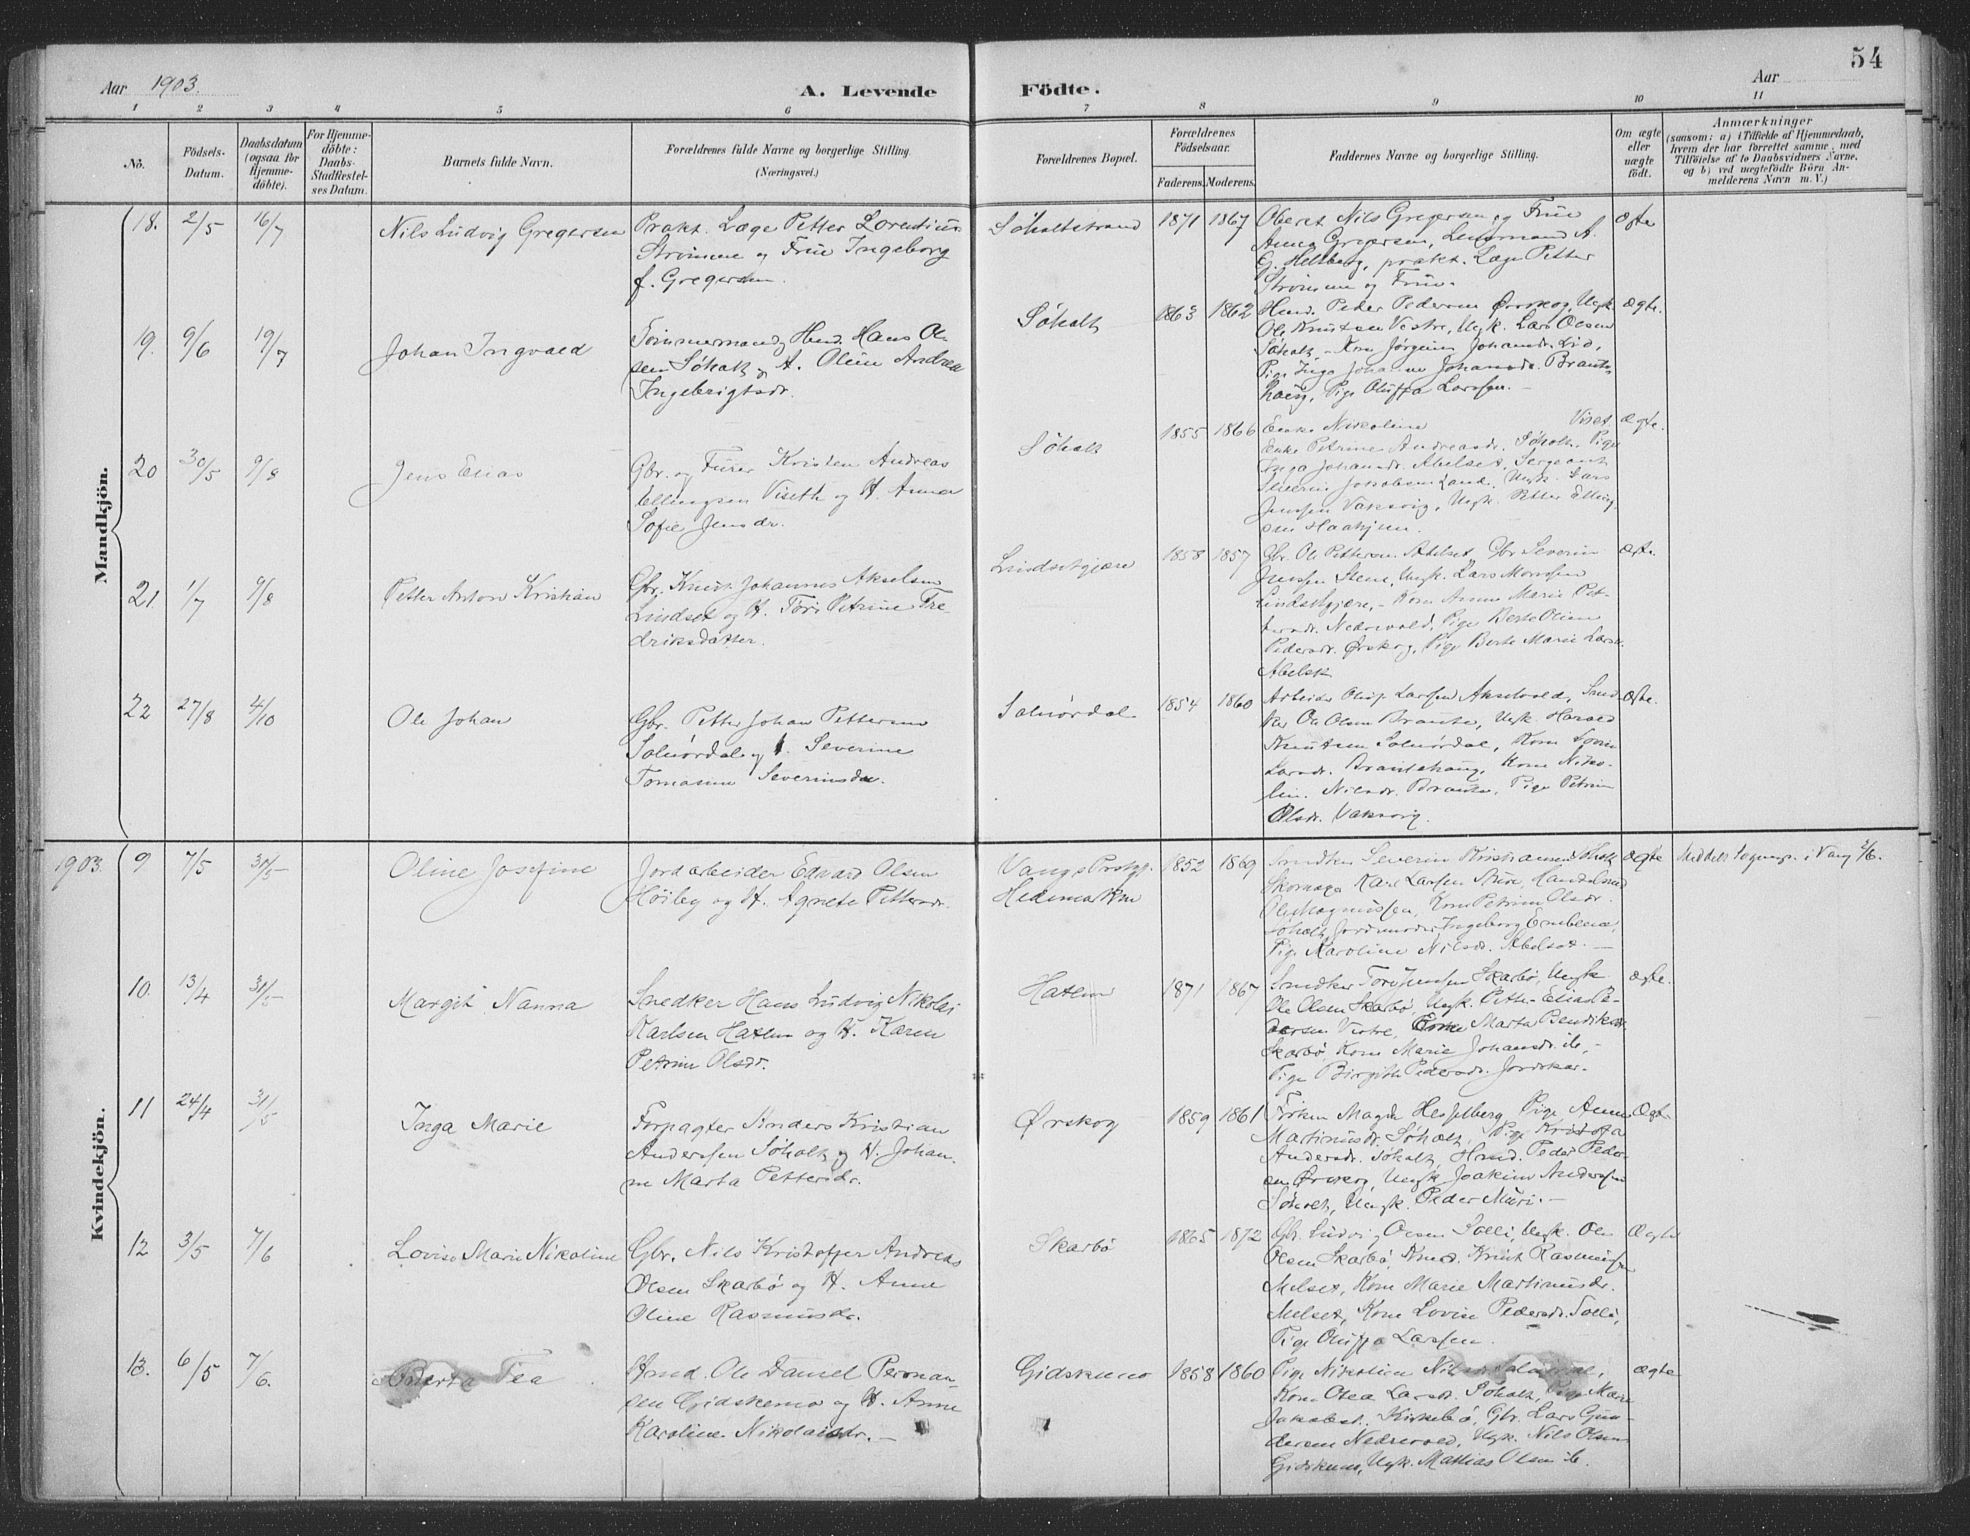 54
Aar 1903.
A. Levende Födte.
Aar
1 2 3 4 5 6 7 8 9 10 11
No.
Födsels-Datum.
Daabsdatum (ogsaa for Hjemme-döbte).
For Hjemme-döbte: Daabs-Stadfestel-ses Datum.
Barnets fulde Navn.
Forældrenes fulde Navne og borgerlige Stilling. (Næringsvei.)
Forældrenes Bopæl.
Forældrenes Födselsaar.
Faderens. Moderens.
Faddernes Navne og borgerlige Stilling.
Om ægte eller uægte födt.
Anmærkninger
(saasom: a) i Tilfælde af Hjemmedaab,
hvem der har forrettet samme, med
Tilföielse af to Daabsvidners Navne,
og b) ved uægtefödte Börn An-
melderens Navn m. V.)
Mandkjön.
18. 2/5 16/7 Nils Ludvig Gregersen
Prakt. Læge Petter Lorentius
Strömme og Frue Ingeborg
f. Gregersen.
Söholtstrand 1871 1867
Oberst Nils Gregersen og Frue
Anna Gregersen, Lensmand A.
G. Helsberg, prakt. Læge Petter
Strömme og Frue.
ægte
19. 9/6 19/7 Johan Ingvald
Tömmermand, Hmd. Hans Ol-
sen Söholt og H. Oline Andrea
Ingebrigtsdr.
Söholt 1863 1862
Hmd. Peder Pedersen Ørskog, Ungk.
Ole Knutsen Vestre, Ungk. Lars Olsen
Söholt, Kone Jörgine Johansdr. Lid,
Pige Inga Johanne Johansdr. Braute-
haug, Pige Oluffa Larssen. -
ægte.
20 30/5 9/8 Jens Elias
Gbr. og Furer Kristen Andreas
Ellingsen Viseth og H. Anna
Sofie Jensdr.
Söholt 1855 1866
Enke Nikoline Viset
Enke Petrine Andreasdr. Söholt, Pige
Inga Johansdr. Abelset, Sergeant
Severin Jakobsen Land, Ungk. Lars
Jenssen Vaksvig, Ungk. Petter Elling
sen Haahjem.
ægte.
21. 1/7 9/8 Petter Anton Kristian
Gbr. Knut Johannes Akselsen
Lindset og H. Tori Petrine Fre
driksdatter.
Lindsetgjære 1858 1857
Gbr. Ole Pettersen Abelset, Gbr Severin
Jenssen Stene, Ungk. Lars Monssen
Lindsetgjære, - Kone Anne Marie Pet-
tersdr. Nedrevold, Pige Berte Oline
Pedersdr. Ørskog, Pige Berte Marie Larsdr.
Abelset
ægte
22 27/8 4/10 Ole Johan
Gbr. Petter Johan Pettersen
Solnördal og H. Severine
Tomasine Severinsdr.
Solnördal 1854 1860
Arbeider Oluf Larssen Akselvold, Sned
ker Ole Olsen Braute, Ungk. Harald
Knutsen Solnördal, Kone Lovise
Larsdr. Brautehaug, Kone Niko-
line Nilsdr. Braute, Pige Petrine
Olsdr. Vaksvig.
ægte.
1903.
Kvindekjön.
9 7/5 30/5 Oline Josefine
Jordarbeider Edvard Olsen
Höiby og H. Agnete Pettersdr.
Vangs Prstgj.
Hedemarken
1852 1869
Snedker Severin Kristiansen Söholt
Skomager Karl Larssen Sture, Handelsmd
Ole Magnussen, Kone Petrine Olsdr.
Söholt, Jordmoder Ingeborg Emblem,
Pige Karoline Nilsdr. Abelset. -
ægte
Meddelt Sognepr. i Vang 2/6.
10. 13/4 31/5 Margit Nanna
Snedker Hans Ludvig Nikolai
Karlsen Hatlen og H. Karen
Petrine Olsdr.
Hatlen 1871 1867
Snedker Tore Jenssen Skarbö, Ungk.
Ole Olsen Skarbö, Ungk. Petter Elias Pe-
dersen Vestre, Enke Marta Bendiksdr.
Skarbö, Kone Marie Johansdr. ib, -
Pige Birgitte Pedersdr. Jordskar.
ægte.
11 24/4 31/5 Inga Marie
Forpagter Anders Kristian
Anderssen Söholt og H. Johan-
ne Marta Pettersdr.
Ørskog 1859 1861
Fröken Magda Hesselberg, Pige Anna
Martinusdr. Söholt, Pige Kristofa
Andersdr. Söholt, Hmd. Peder Peder-
sen Ørskog, Ungk. Joakim Anderssen
Söholt, Ungk. Peder Muri. -
Ægte
12 3/5 7/6 Lovise Marie Nikoline
Gbr. Nils Kristoffer Andreas
Olsen Skarbö og H. Anne
Oline Rasmusdr.
Skarbö 1865 1872
Gbr. Ludvig Olsen Solli, Ungk. Ole
Olsen Skarbö, Hmd. Knut Rasmussen
Melset, Kone Marie Martinusdr.
Melset, Kone Lovise Pedersdr. Solli,
Pige Oluffa Larssen.
Ægte
13. 6/5 7/6. Berta Tea
Hmd. Ole Daniel Peronan-
sen Gidskemo og H. Anne
Karoline Nikolaisdr. -
Gidskemo 1858 1860
Pige Nikoline Nilsdr. Solnördal,
Kone Olea Larsdr. Söholt, Pige Marie
Jakobsdr. Kirkebö, Gbr. Lars Gun-
dersen Nedrevold, Ungk. Nils Olsen
Gidskemo, Ungk. Mathias Olsen ib.
ægte